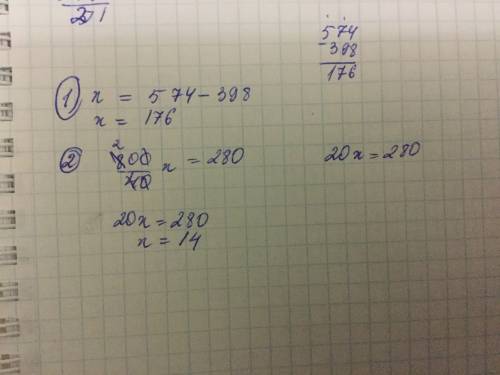 574
-398
176
① x = 574-398
x = 176
② 800/40 x = 280
20x=280
20x=280
x = 14